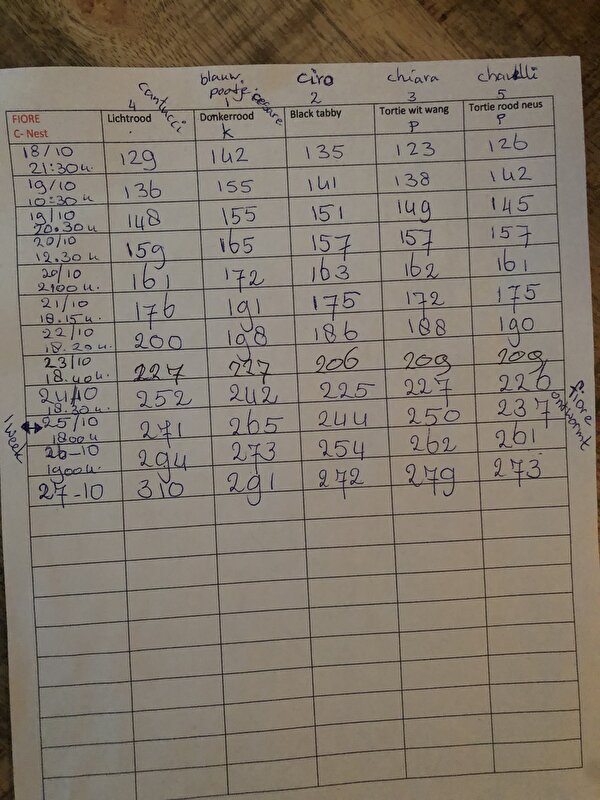 cantucci blauw. pootje cesare ciro chiara
4 1 2 3 5
FIORE Lichtrood Donkerrood Black tabby Tortie wit wang Tortie rood neus
C- Nest k P P
18/10 129 142 135 123 126
21:30u.
19/10 136 155 141 138 142
10:30u
19/10 148 155 151 149 145
20.30u
20/10 159 165 157 157 157
12.30u
20/10 161 172 163 162 161
2100u.
21/10 176 191 175 172 175
18.15u.
22/10 200 198 186 188 190
18.20u.
23/10 227 227 206 209 209
18.40u.
24/10 252 242 225 227 226
18.30u. fiore ontwormt
1 week 25/10 271 265 244 250 237
1800u
26-10 294 273 254 262 261
1900u.
27-10 310 291 272 279 273